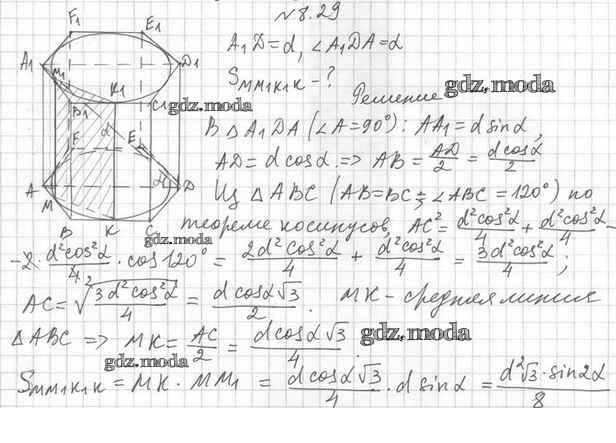 №8.29
F₁ E₁
A₁D = d, ∠A₁DA = α
A₁ M₁ K₁ D₁
S_MM₁K₁K - ?
gdz.moda
Решение
B₁ C₁ gdz.moda
В △A₁DA (∠A = 90°): AA₁ = d sinα,
d
F E
AD = d cosα => AB = AD/2 = d cosα/2
A M α D
Из △ABC (AB = BC; ∠ABC = 120°) по
B K C
теореме косинусов, AC² = d²cos²α/4 + d²cos²α/4 -
gdz.moda
-2· d²cos²α/4 · cos120° = 2d²cos²α/4 + d²cos²α/4 = 3d²cos²α/4;
AC = √(3d²cos²α/4) = d cosα√3/2. MK - средняя линия
△ABC => MK = AC/2 = d cosα√3/4. gdz.moda
gdz.moda
S_MM₁K₁K = MK · MM₁ = d cosα√3/4 · d sinα = d²√3 · sin2α/8